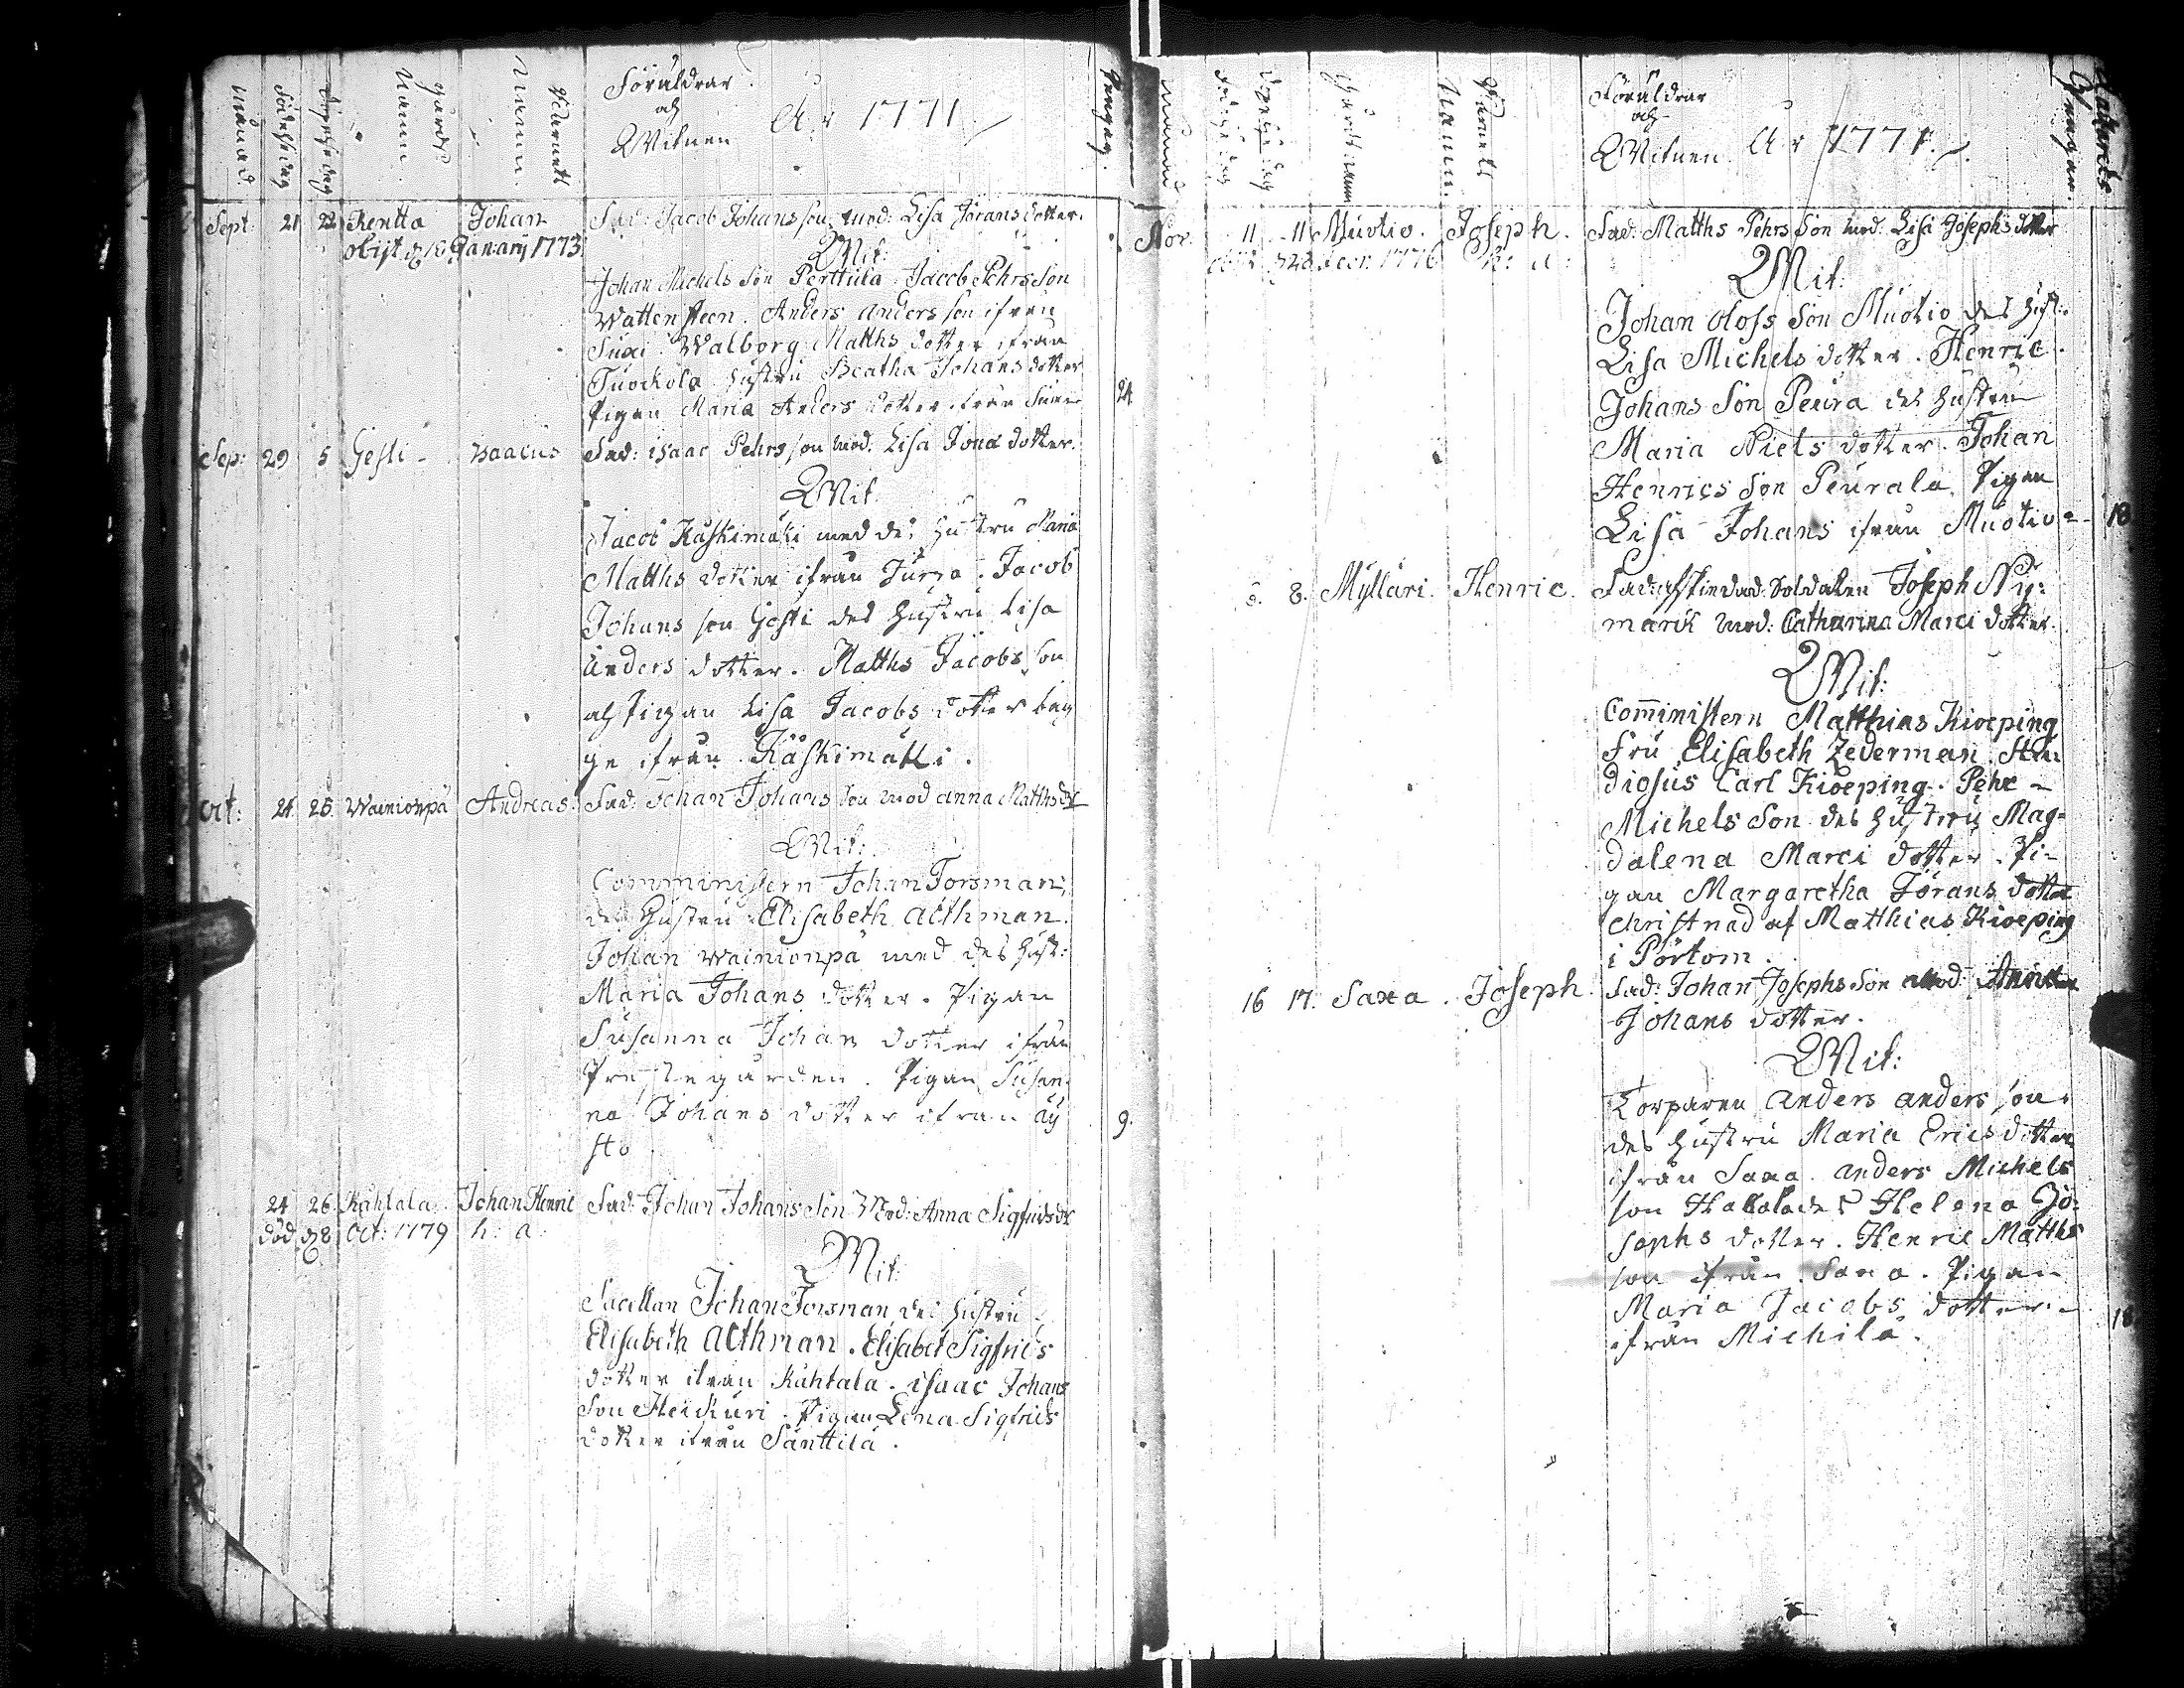 Månad.
Födelsedag
Döpelsedag
Gårds Namn.
Barnets Namn.
Föräldrar
och
Witnen
År 1771
Sept: 21 22 Rentta Johan Fad: Jacob Johans son. mod: Lisa Jörans dotter.
obijt d 18 Januarij 1773
Wit:
Johan Michels Son Perttula. Jacob Pehrs Son
Wattensteen. Anders anders son ifrån
Walborg Matths dotter ifrån
Tuockola hustru Beatha Johans dotter
Pigan Maria Anders dotter ifrån
24
Sep: 29 5 Gesti - Isaacus Fad: isaac Pehrs son mod. Lisa Jonæ dotter.
Wit.
Jacob Käskimäki med des hustru Maria
Matths dotter ifrån Jurra. Jacob
Johans son Gesti des hustru Lisa
anders dotter. Matths Jacobs son
och Pigan Lisa Jacobs dotter beg
ge ifrån Käskimäki.
oct: 24 25 Wainionpä Andreas. Fad: Johan Johans son mod anna Matths dr
Wit:
Comministern Johan Forsman,
des hustru Elisabeth althman.
Johan wainionpä med des hust:
Maria Johans dotter. Pigan
Susanna Johans dotter ifrån
Prestegården. Pigan Susan-
na Johans dotter ifrån äy
sto
9.
24 26 Kahtala. Johan Henric Fad: Johan Johans Son Mod: Anna Sigfrids dr
död d 8 Oct: 1779 h: a.
Wit:
Sacellan Johan Forsman, des hustru
Elisabeth althman. Elisabet Sigfrids
dotter ifrån Kahtala. isaac Johans
Son Heickuri. Pigan Lena Sigfrids
dotter ifrån Santtila.
Månad
Gårds namn
Barnets Namn.
Föräldrar
och
Witnen.
År 1771.
Nov. 11 11 Muotio. Joseph. Fad: Matths Pehrs Son mod. Lisa Josephs dotter
1776
Wit:
Johan olofs Son Muotio des hust:
Lisa Michels dotter. Henric
Johans Son Peura des hustru
Maria Niels dotter. Johan
Henrics Son Peurala. Pigan
Lisa Johans ifrån Muotio -
18
8. Myllari. Henric. Fad: afskiedad Soldaten Joseph Ny:
marck mod: Catharina Marci dotter.
Wit:
Comministern Matthias Kioeping
Fru Elisabeth Zederman. Stu-
diosus Carl Kioeping. Pehr -
Michels Son des hustru Mag-
dalena Marci dotter. Pi-
gan Margaretha Jörans dotter
christnad af Matthias Kioeping
i Pörtom.
16 17. Saxa. Joseph. Fad: Johan Josephs Son mod:
Johans dotter.
Wit:
Torparen anders anders son.
des hustru Maria Erics dotter
ifrån Saxa. anders Michels
son Helena Jo-
sephs dotter. Henric Matths
son ifrån Saxa. Pigan
Maria Jacobs dotter -
ifrån Michilä.
18